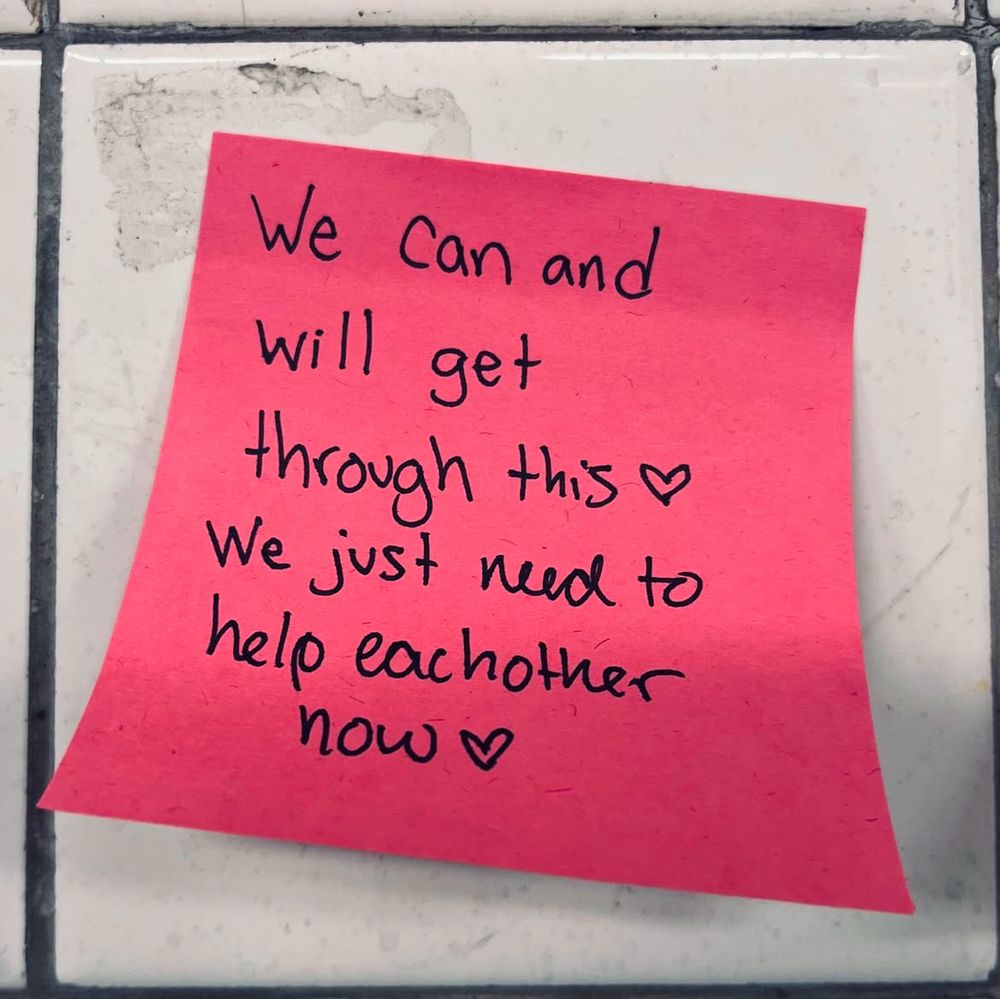 We can and
will get
through this ♡
We just need to
help eachother
now ♡